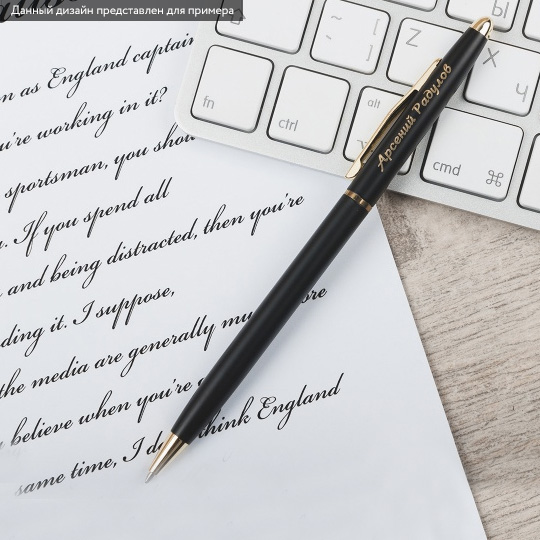 Данный дизайн представлен для примера
n as England captain
u're working in it?
sportsman, you shou
. If you spend all
and being distracted, then you're
ding it. I suppose,
the media are generally mu ore
believe when you're
same time, I d think England
Арсений Радулов
fn
ctrl
alt
cmd ⌘
~
[
]
Z
X
Ч
Ы